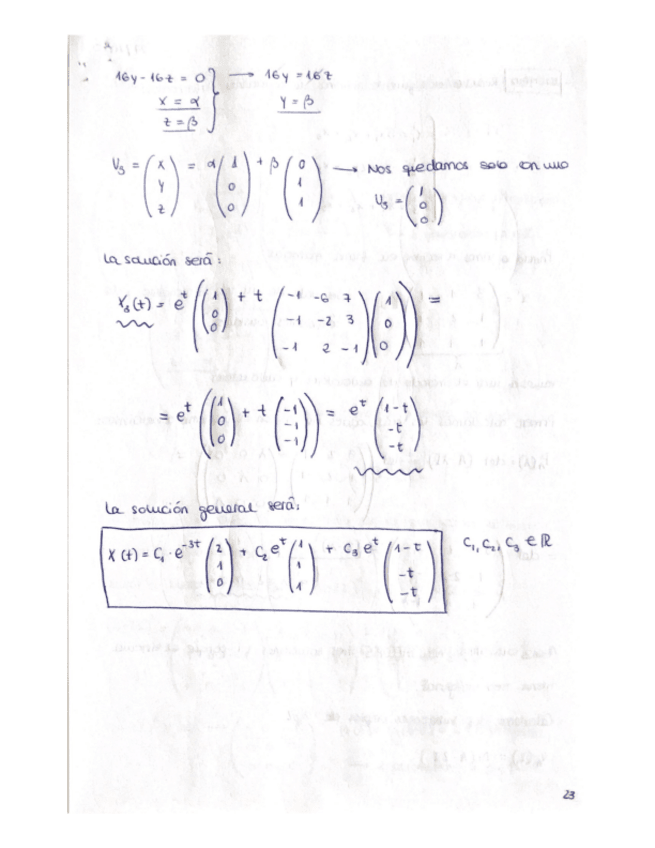 16y - 16z = 0 } → 16y = 16z
x = α    y = β
z = β
V₃ = (x y z) = α (1 0 0) + β (0 1 1) → Nos quedamos solo con uno
V₃ = (1 0 0)
La solución será:
X₃(t) = e^t ( (1 0 0) + t (-1 -6 7 / -1 -2 3 / -1 2 -1) (1 0 0) ) =
= e^t ( (1 0 0) + t (-1 -1 -1) ) = e^t (1-t -t -t)
La solución general será:
X(t) = C₁ · e^-3t (2 1 0) + C₂ e^t (1 1 1) + C₃ e^t (1-t -t -t)    C₁, C₂, C₃ ∈ ℝ
23